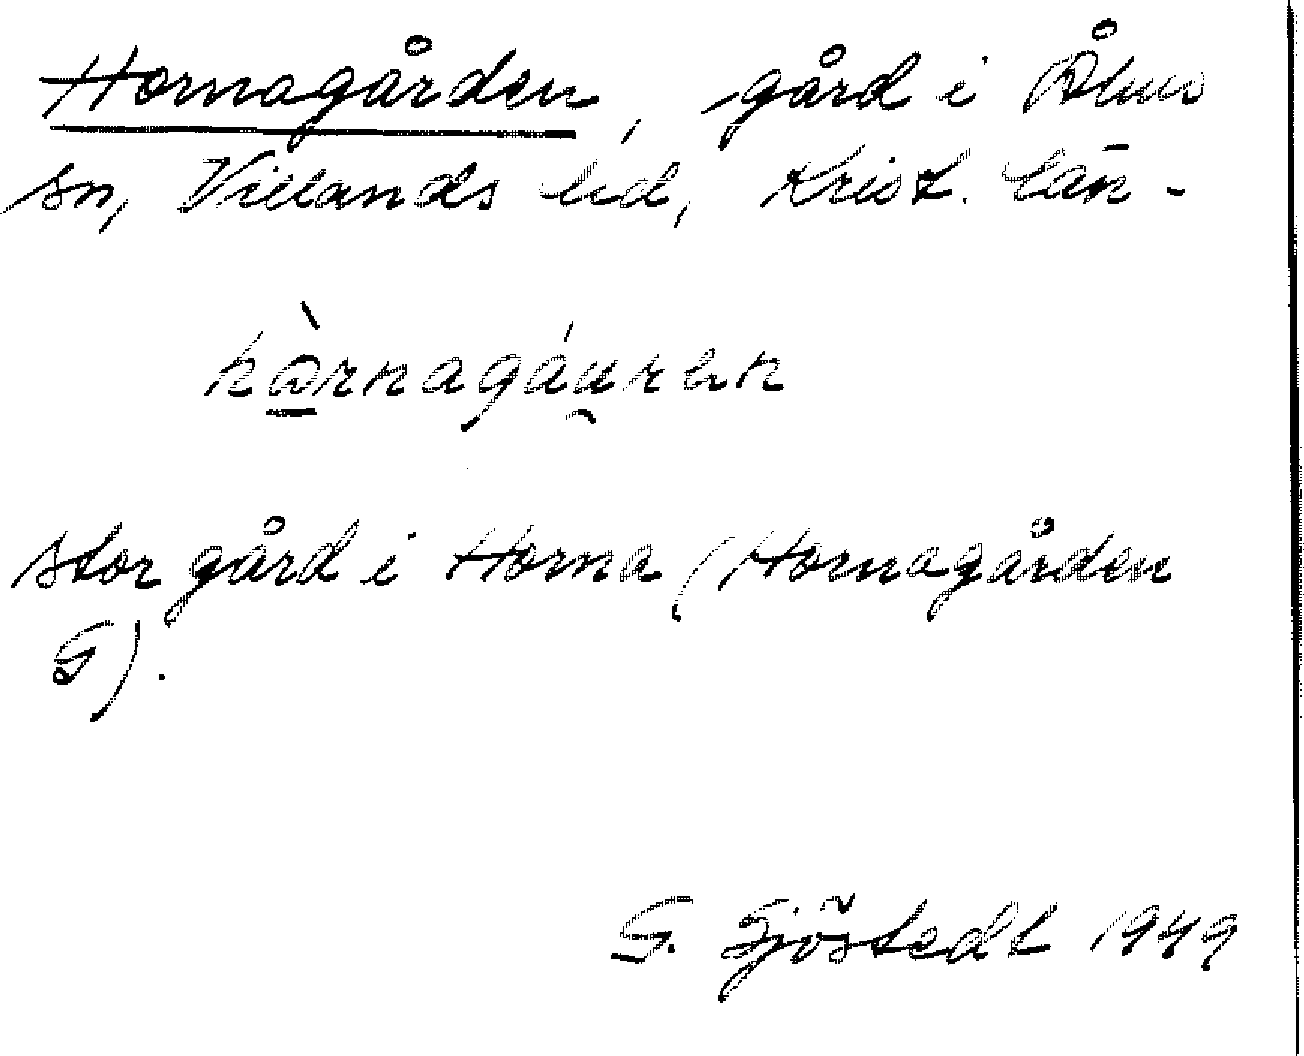 Hornagården, gård i Åhus
sn, Villands hd, Krist. län.
hὰrnagáu̯ren
stor gård i Horna (Hornagården
G).
G. Sjöstedt 1949